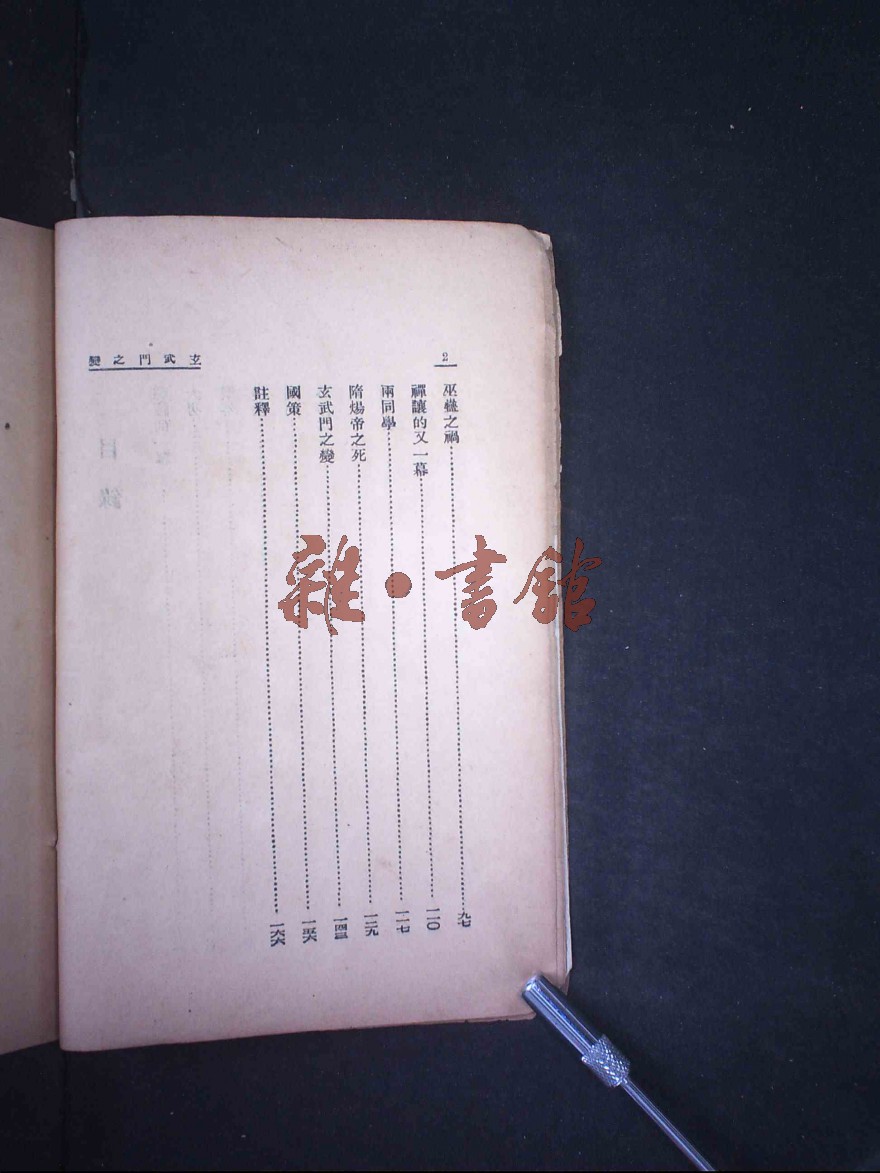 玄武門之變
2
巫蠱之禍……九七
禪讓的又一幕……一一〇
兩同學……一一七
隋煬帝之死……一二九
玄武門之變……一四三
國策……一五六
註釋……一六六
雜•書館
目錄